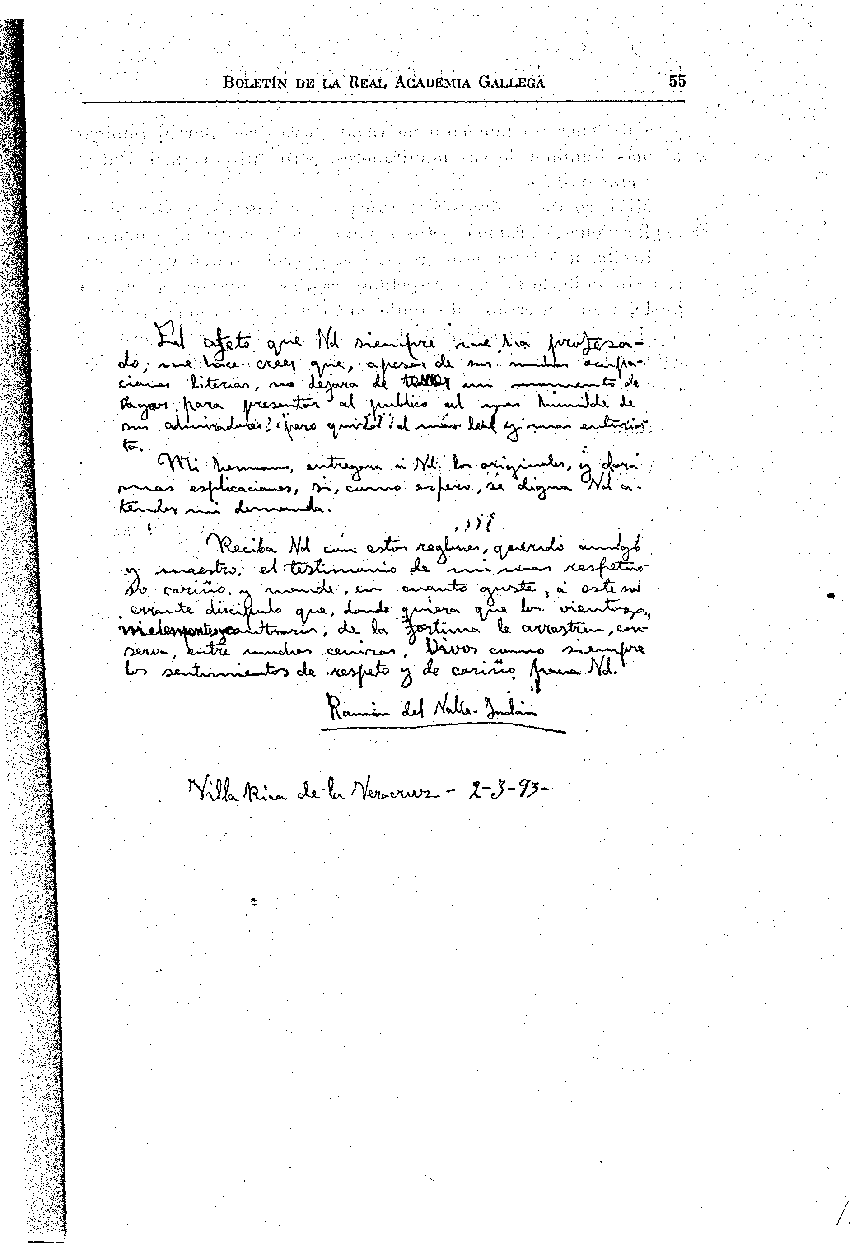 BOLETÍN DE LA REAL ACADEMIA GALLEGA 55
El afeto que Vd siempre me ha profesa-
do, me hace creer que, apesar de sus muchas ocupa-
ciones literias, no dejara de tener un momento de
vagar, para presentar al publico al mas humilde de
sus admiradores; ¡pero quizá! el más leal y mas entusias
ta.
Mi hermano, entregara á Vd. los originales, y dara
mas esplicaciones, si, como espero, se digna Vd a-
tender mi demanda.
Reciba Vd con estos reglones, querido amigo
y maestro, el testimonio de mi mas respetuo
so cariño, y mande, en cuanto guste, á este su
errante discipulo que, donde quiera que los vientos,
y contrarios, de la fortuna le arrastren, con
serva, entre muchas cenizas, Vivos como siempre
los sentimientos de respeto y de cariño para Vd.
Ramón del Valle-Inclán
Villa Rica de la Veracruz - 2-3-93-